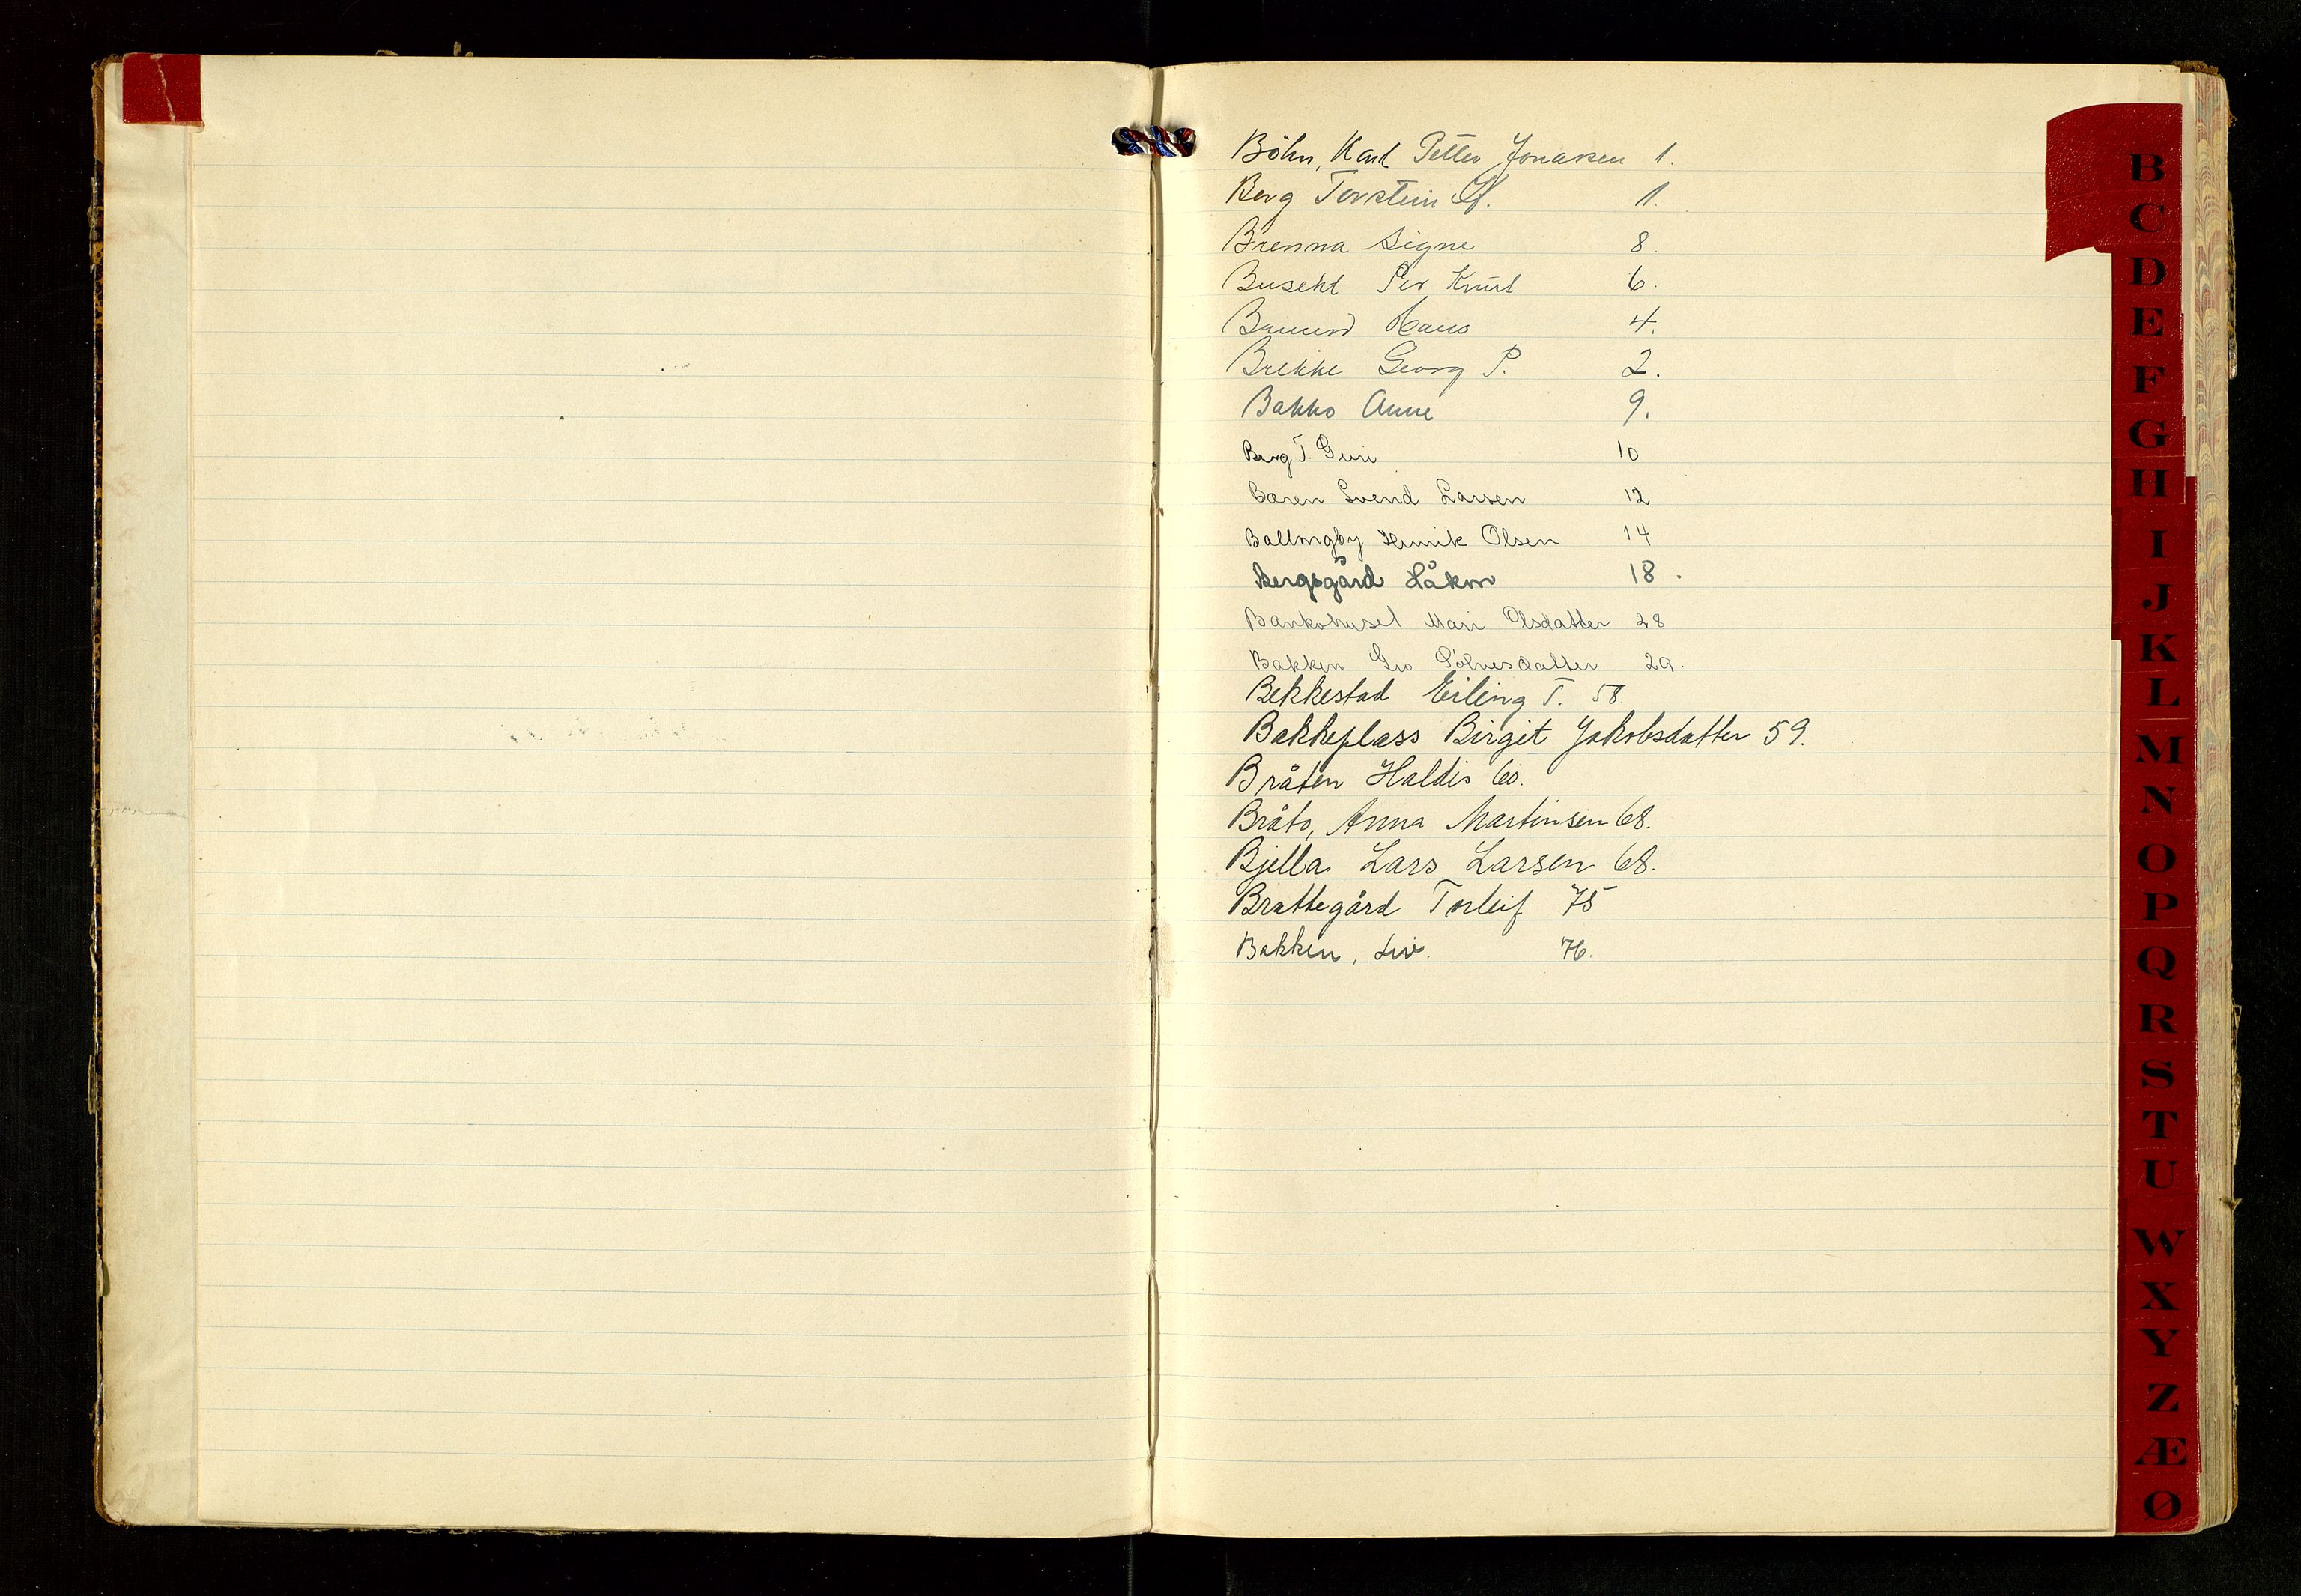 Böhn, Karl Petter Jonassen 1.
Berg Torstein 1.
Brenna Signe 8.
Per Knut 6.
Hans 4.
Brekke Georg P. 2.
Bakko Anne 9.
Berg T. Guri 10
Baren Svend Larsen 12
Ballongby Henrik Olsen 14
Bergsgård Håkon 18.
Bankohuset Mari Olsdatter 28
Bakken Gro Sölvesdatter 29.
Bekkestad Erling T. 58
Bakkeplass Birgit Jakobsdatter 59.
Bråten Haldis 60.
Bråto, Anna Martinsen 68.
Bjella Lars Larsen 68.
Brattegård Torleif 75
Bakken, Liv. 76.
B
C
D
E
F
G
H
I
J
K
L
M
N
O
P
Q
R
S
T
U
W
X
Y
Z
Æ
Ø